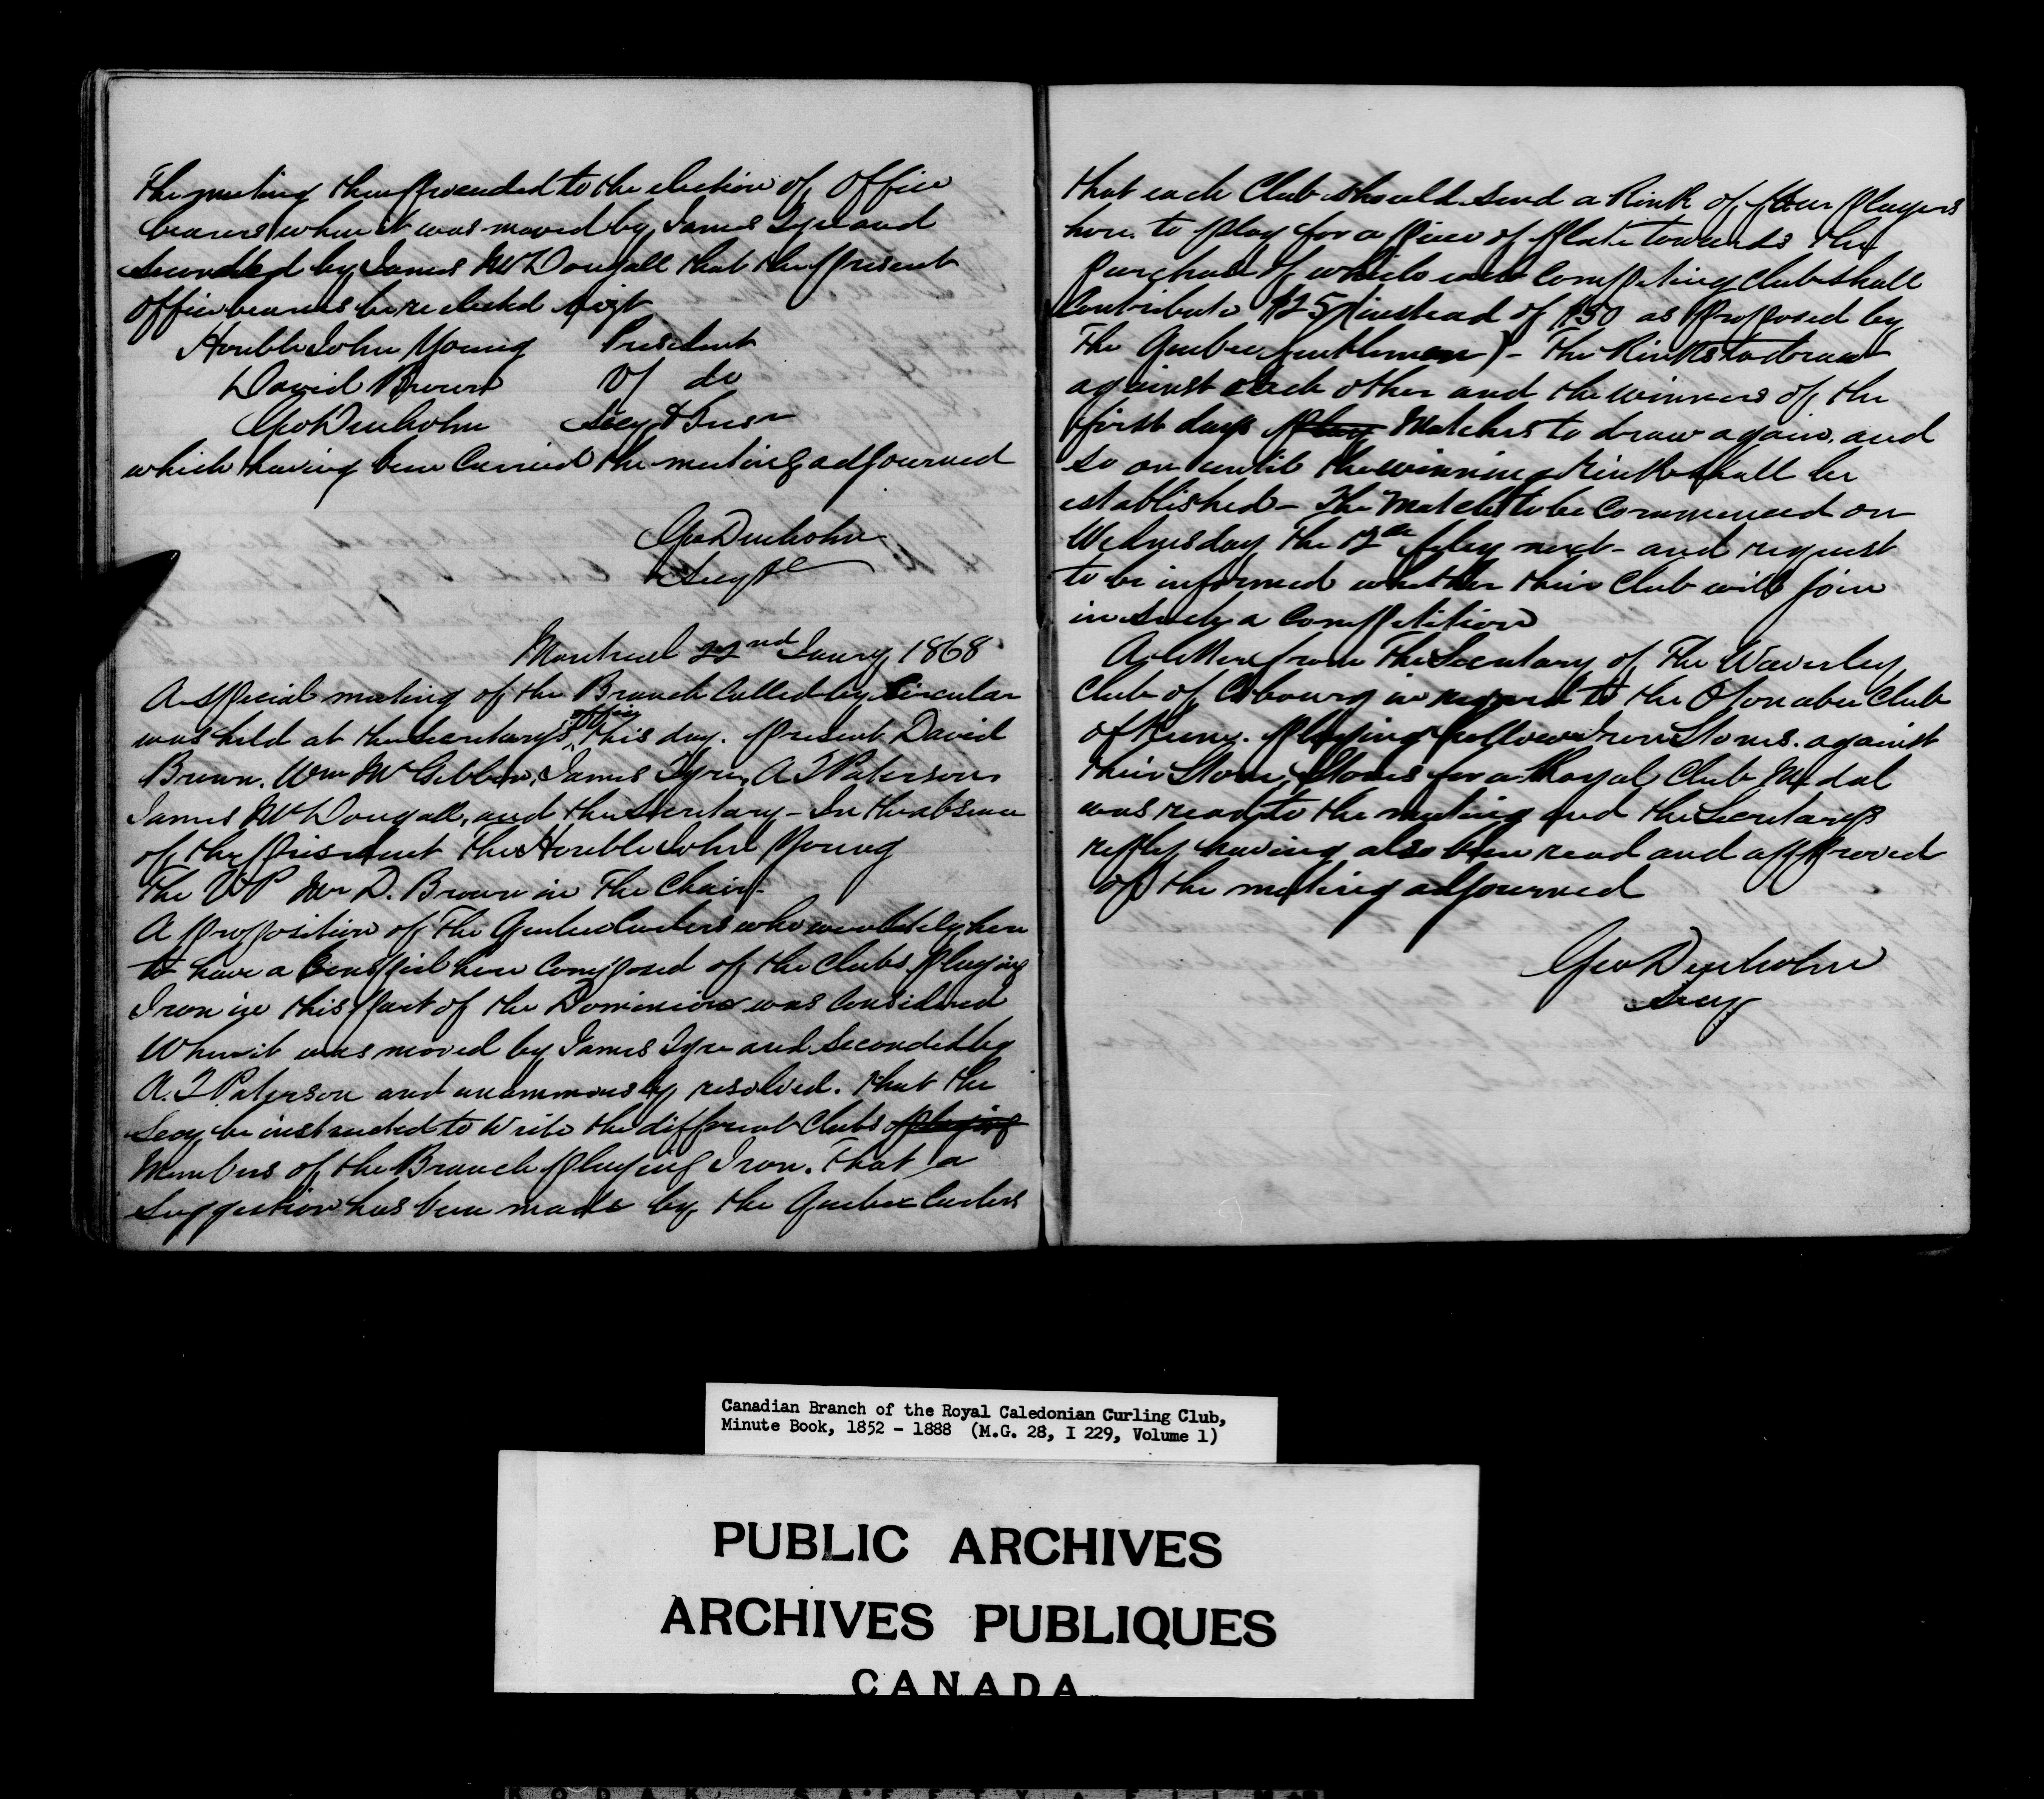 The meeting then proceeded to the election of Office
bearers when it was moved by James Tyre and
Seconded by James McDougall that the present
office bearers be re elected vizt
Honble John Young President
David Brown V do
Geo Denholm Secy & Treasr
which having been Carried the meeting adjourned
Geo Denholm
Secy
Montreal 22nd Jany 1868
A special meeting of the Branch Called by Circular
was held at the Secretarys office this day. present David
Brown. Wm McGibbon, James Tyre, A T Paterson
James McDougall, and the Secretary - In the absence
of the president The Honble John Young
The V P Mr D. Brown in The Chair -
A proposition of The Quebec Curlers who were lately here
to have a Bonspiel here Composed of the Clubs playing
Iron in this part of the Dominion was Considered
When it was moved by James Tyre and Seconded by
A. T Paterson and unanimously resolved. that the
Secy be instructed to write the different Clubs playing
Members of the Branch playing Iron. that a
Suggestion has been made by the Quebec Curlers
that each Club should send a Rink of four players
here to play for a piece of plate towards the
purchase of which each Competing Club shall
Contribute $25 (instead of $50 as proposed by
The Quebec Gentlemen) - The Rinks to draw
against each other and the winners of the
first days play Matches to draw again. and
so on until the winning Rink shall be
established - The Match to be Commenced on
Wednesday the 12th feby next - and request
to be informed whether their Club will join
in such a Competition
A letter from The Secretary of The Waverley
Club of Cobourg in regard to the Otonabee Club
of Keene. playing hollow Iron Stones. against
their Stone Stones for a Royal Club Medal
was read to the meeting and the Secretarys
reply having also been read and approved
of the meeting adjourned
Geo Denholm
Secy
Canadian Branch of the Royal Caledonian Curling Club,
Minute Book, 1852 - 1888 (M.G. 28, I 229, Volume 1)
PUBLIC ARCHIVES
ARCHIVES PUBLIQUES
CANADA